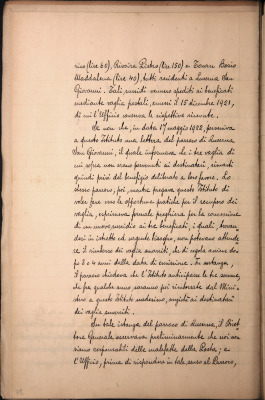 rino (lire 60), Rivoira Pietro (lire 150) e Tourn Boeris
Maddalena (lire 40), tutti residenti a Luserna San
Giovanni. Tali sussidi vennero spediti ai beneficati
mediante vaglia postali, emessi il 15 dicembre 1921,
di cui l'Ufficio conserva le rispettive ricevute.
Se non che, in data 17 maggio 1922, perveniva
a questo Istituto una lettera del parroco di Luserna
San Giovanni, il quale informava che i tre vaglia di
cui sopra non erano pervenuti ai destinatari, rimasti
quindi privi del benefizio deliberato a loro favore. Lo
stesso parroco, poi, mentre pregava questo Istituto di
voler fare le opportune pratiche per il ricupero dei
vaglia, esprimeva formale preghiera per la concessione
di un nuovo sussidio ai tre beneficati, i quali, trovan
dosi in istrette ed urgenti bisogno, non potevano attende
re il rimborso dei vaglia smarriti, che di regola avviene do
po 3 o 4 anni dalla data di emissione. In sostanza,
il parroco chiedeva che l'Istituto anticipasse le tre somme,
che fra qualche anno saranno poi rimborsate dal Mini
stero a questo Istituto medesimo, anziché ai destinatari
dei vaglia smarriti.
Su tale istanza del parroco di Luserna, il Diret
tore Generale osservava preliminarmente che noi non
siamo responsabili delle malefatte della Posta; e
l'Ufficio, prima di rispondere in tale senso al Parroco,